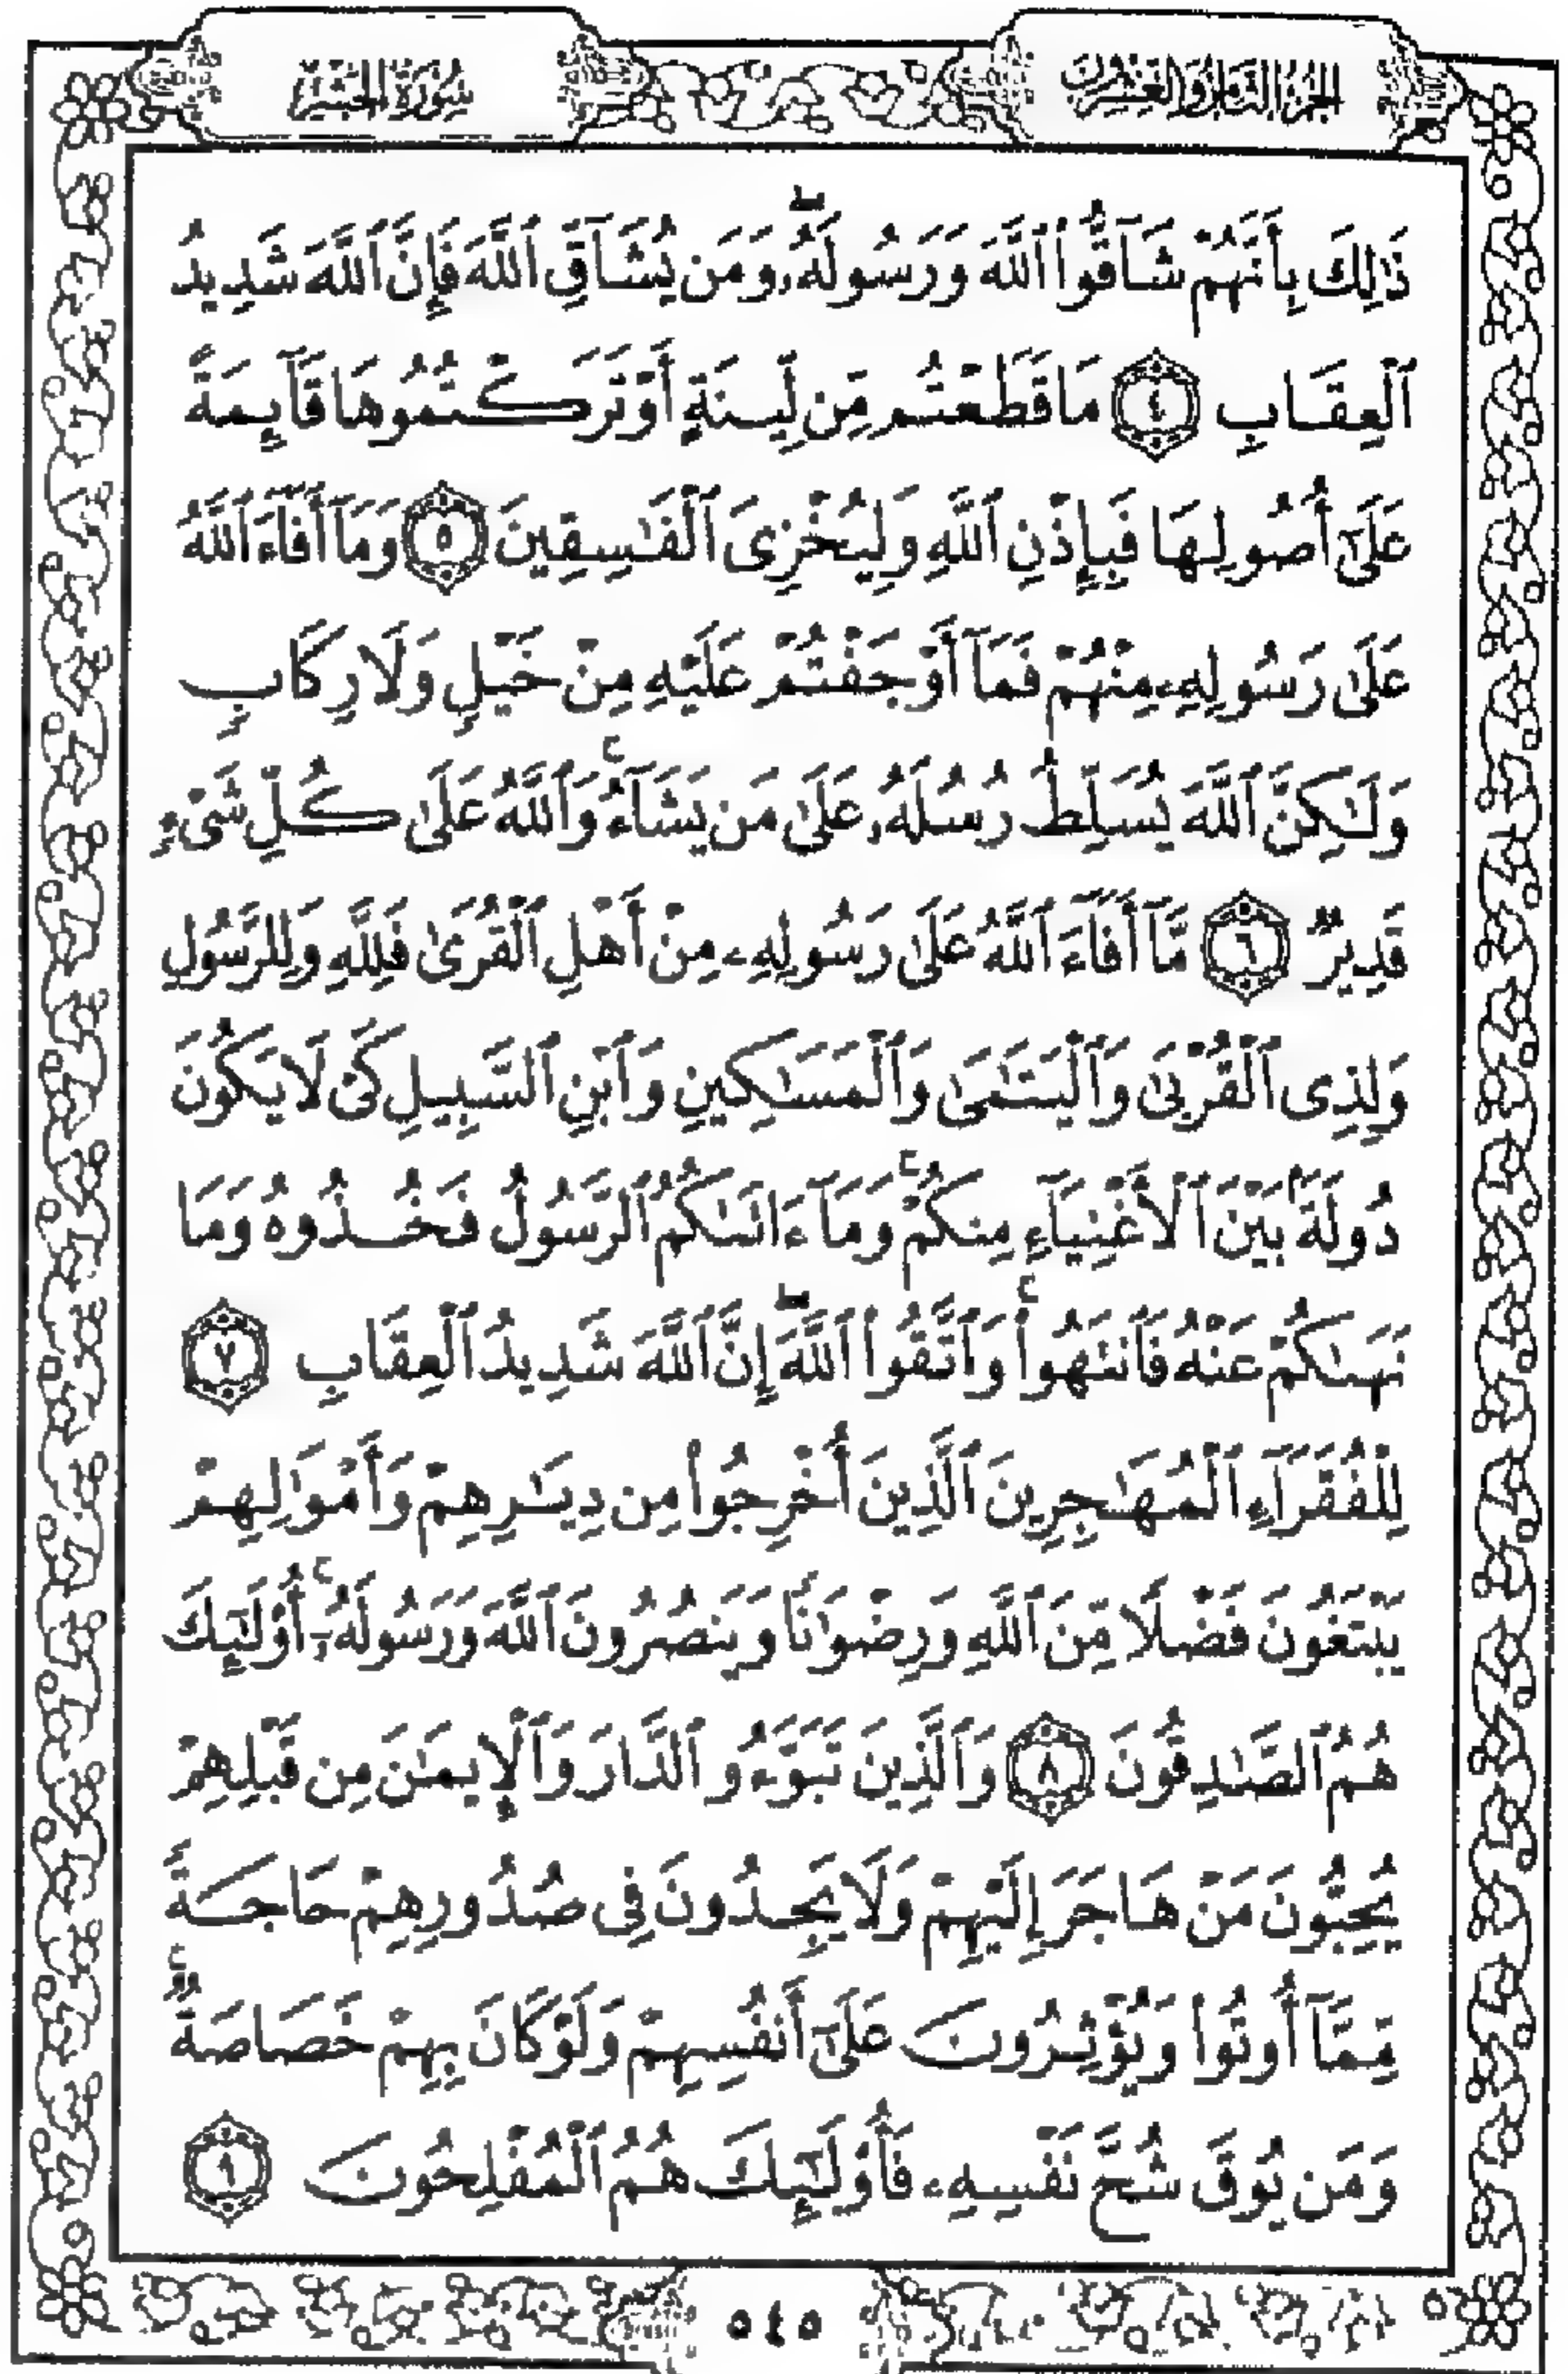 الجزء الثامن والعشرون
سورة الحشر
ذَٰلِكَ بِأَنَّهُمْ شَآقُّوا۟ ٱللَّهَ وَرَسُولَهُۥۖ وَمَن يُشَآقِّ ٱللَّهَ فَإِنَّ ٱللَّهَ شَدِيدُ
ٱلْعِقَابِ ٤ مَا قَطَعْتُم مِّن لِّينَةٍ أَوْ تَرَكْتُمُوهَا قَآئِمَةً
عَلَىٰٓ أُصُولِهَا فَبِإِذْنِ ٱللَّهِ وَلِيُخْزِىَ ٱلْفَٰسِقِينَ ٥ وَمَآ أَفَآءَ ٱللَّهُ
عَلَىٰ رَسُولِهِۦ مِنْهُمْ فَمَآ أَوْجَفْتُمْ عَلَيْهِ مِنْ خَيْلٍ وَلَا رِكَابٍ
وَلَٰكِنَّ ٱللَّهَ يُسَلِّطُ رُسُلَهُۥ عَلَىٰ مَن يَشَآءُۚ وَٱللَّهُ عَلَىٰ كُلِّ شَىْءٍ
قَدِيرٌ ٦ مَّآ أَفَآءَ ٱللَّهُ عَلَىٰ رَسُولِهِۦ مِنْ أَهْلِ ٱلْقُرَىٰ فَلِلَّهِ وَلِلرَّسُولِ
وَلِذِى ٱلْقُرْبَىٰ وَٱلْيَتَٰمَىٰ وَٱلْمَسَٰكِينِ وَٱبْنِ ٱلسَّبِيلِ كَىْ لَا يَكُونَ
دُولَةًۢ بَيْنَ ٱلْأَغْنِيَآءِ مِنكُمْۚ وَمَآ ءَاتَىٰكُمُ ٱلرَّسُولُ فَخُذُوهُ وَمَا
نَهَىٰكُمْ عَنْهُ فَٱنتَهُوا۟ۚ وَٱتَّقُوا۟ ٱللَّهَۖ إِنَّ ٱللَّهَ شَدِيدُ ٱلْعِقَابِ ٧
لِلْفُقَرَآءِ ٱلْمُهَٰجِرِينَ ٱلَّذِينَ أُخْرِجُوا۟ مِن دِيَٰرِهِمْ وَأَمْوَٰلِهِمْ
يَبْتَغُونَ فَضْلًا مِّنَ ٱللَّهِ وَرِضْوَٰنًا وَيَنصُرُونَ ٱللَّهَ وَرَسُولَهُۥٓۚ أُو۟لَٰٓئِكَ
هُمُ ٱلصَّٰدِقُونَ ٨ وَٱلَّذِينَ تَبَوَّءُو ٱلدَّارَ وَٱلْإِيمَٰنَ مِن قَبْلِهِمْ
يُحِبُّونَ مَنْ هَاجَرَ إِلَيْهِمْ وَلَا يَجِدُونَ فِى صُدُورِهِمْ حَاجَةً
مِّمَّآ أُوتُوا۟ وَيُؤْثِرُونَ عَلَىٰٓ أَنفُسِهِمْ وَلَوْ كَانَ بِهِمْ خَصَاصَةٌۚ
وَمَن يُوقَ شُحَّ نَفْسِهِۦ فَأُو۟لَٰٓئِكَ هُمُ ٱلْمُفْلِحُونَ ٩
٥٤٥